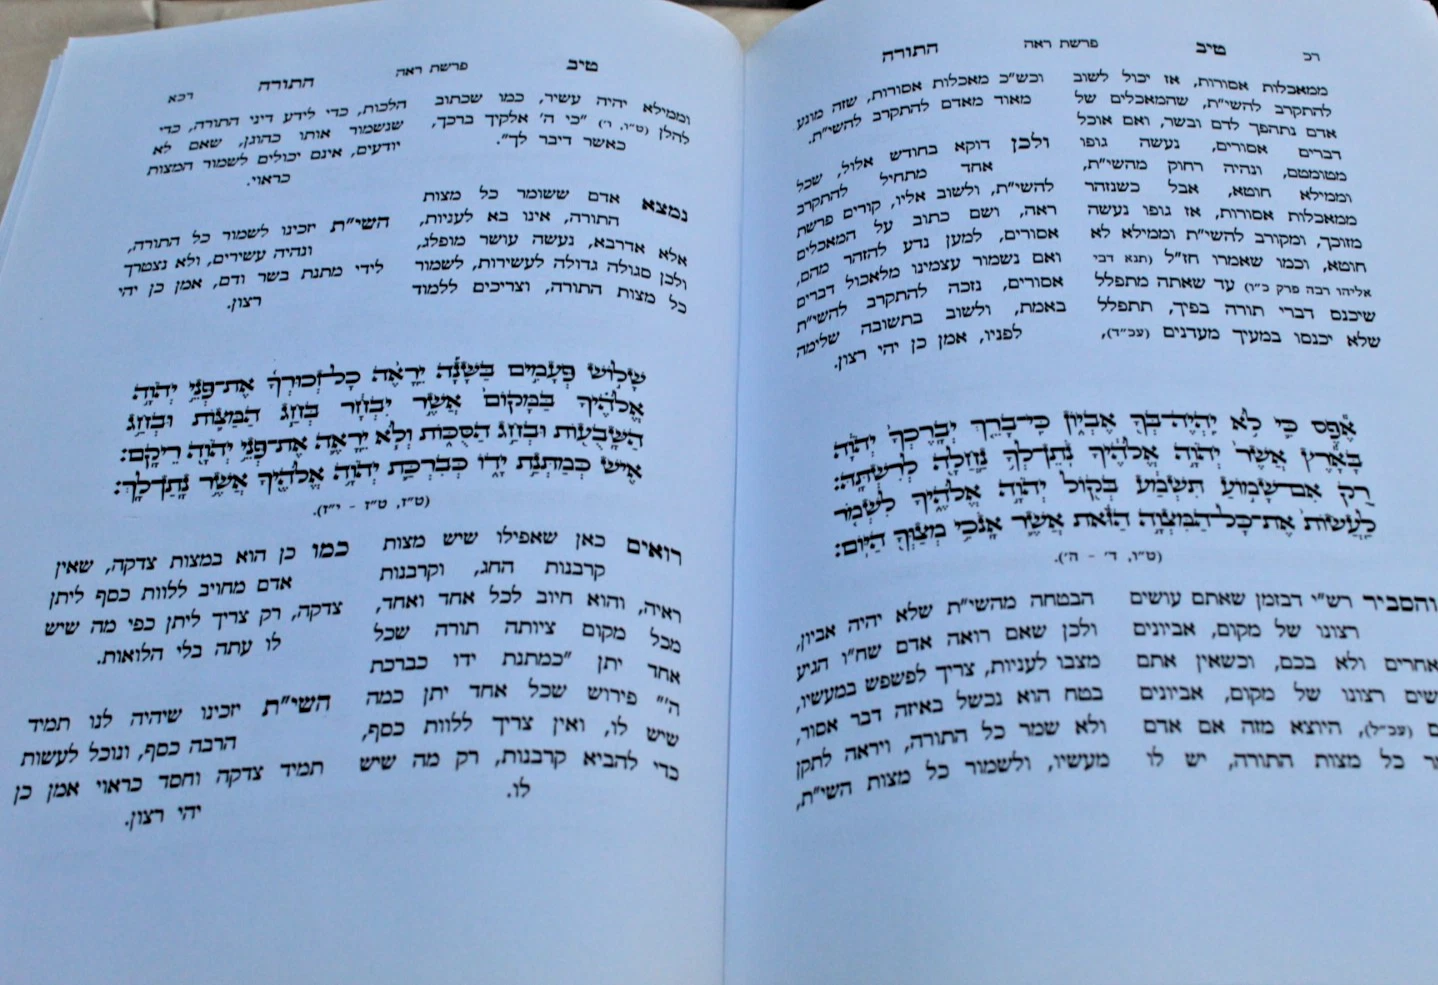 רכ
טיב
פרשת ראה
התורה
ממאכלות אסורות, אז יכול לשוב
להתקרב להשי״ת, שהמאכלים של
אדם נתהפך לדם ובשר, ואם אוכל
דברים אסורים, נעשה גופו
מטומטם, ונהיה רחוק מהשי״ת,
וממילא חוטא, אבל כשנזהר
ממאכלות אסורות, אז גופו נעשה
מזוכך, ומקורב להשי״ת וממילא לא
חוטא, וכמו שאמרו חז״ל (תנא דבי
אליהו רבה פרק כ״ו) עד שאתה מתפלל
שיכנס דברי תורה בפיך, תתפלל
שלא יכנסו במעיך מעדנים (עכ״ד),
וכש״כ מאכלות אסורות, שזה מונע
מאוד מאדם להתקרב להשי״ת.
ולכן דוקא בחודש אלול, שכל
אחד מתחיל להתקרב
להשי״ת, ולשוב אליו, קורים פרשת
ראה, ושם כתוב על המאכלים
אסורים, למען נדע להזהר מהם,
ואם נשמור עצמינו מלאכול דברים
אסורים, נזכה להתקרב להשי״ת
באמת, ולשוב בתשובה שלימה
לפניו, אמן כן יהי רצון.
אֶ֕פֶס כִּ֛י לֹ֥א יִֽהְיֶה־בְּךָ֖ אֶבְי֑וֹן כִּֽי־בָרֵ֤ךְ יְבָֽרֶכְךָ֙ יְהֹוָ֔ה
בָּאָ֕רֶץ אֲשֶׁר֙ יְהֹוָ֣ה אֱלֹהֶ֔יךָ נֹֽתֵן־לְךָ֥ נַחֲלָ֖ה לְרִשְׁתָּֽהּ׃
רַ֚ק אִם־שָׁמ֣וֹעַ תִּשְׁמַ֔ע בְּק֖וֹל יְהֹוָ֣ה אֱלֹהֶ֑יךָ לִשְׁמֹ֤ר
לַעֲשׂוֹת֙ אֶת־כׇּל־הַמִּצְוָ֣ה הַזֹּ֔את אֲשֶׁ֛ר אָנֹכִ֥י מְצַוְּךָ֖ הַיּֽוֹם׃
(ט״ו, ד׳ - ה׳).
והסביר רש״י דבזמן שאתם עושים
רצונו של מקום, אביונים
אחרים ולא בכם, וכשאין אתם
רצונו של מקום, אביונים
(עכ״ל), היוצא מזה אם אדם
כל מצות התורה, יש לו
הבטחה מהשי״ת שלא יהיה אביון,
ולכן שאם רואה אדם שח״ו הגיע
מצבו לעניות, צריך לפשפש במעשיו,
בטח הוא נכשל באיזה דבר אסור,
ולא שמר כל התורה, ויראה לתקן
מעשיו, ולשמור כל מצות השי״ת,
טיב
פרשת ראה
התורה
רכא
וממילא יהיה עשיר, כמו שכתוב
להלן (ט״ו, ו׳) ״כי ה׳ אלקיך ברכך,
כאשר דיבר לך״.
נמצא אדם ששומר כל מצות
התורה, אינו בא לעניות,
אלא אדרבא, נעשה עושר מופלג,
ולכן סגולה גדולה לעשירות, לשמור
כל מצות התורה, וצריכים ללמוד
הלכות, כדי לידע דיני התורה, כדי
שנשמור אותו כהוגן, שאם לא
יודעים, אינם יכולים לשמור המצות
כראוי.
השי״ת יזכינו לשמור כל התורה,
ונהיה עשירים, ולא נצטרך
לידי מתנת בשר ודם, אמן כן יהי
רצון.
שָׁל֣וֹשׁ פְּעָמִ֣ים בַּשָּׁנָ֡ה יֵרָאֶ֨ה כׇל־זְכוּרְךָ֜ אֶת־פְּנֵ֣י יְהֹוָ֣ה
אֱלֹהֶ֗יךָ בַּמָּקוֹם֙ אֲשֶׁ֣ר יִבְחָ֔ר בְּחַ֧ג הַמַּצּ֛וֹת וּבְחַ֥ג
הַשָּׁבֻע֖וֹת וּבְחַ֣ג הַסֻּכּ֑וֹת וְלֹ֧א יֵרָאֶ֛ה אֶת־פְּנֵ֥י יְהֹוָ֖ה רֵיקָֽם׃
אִ֖ישׁ כְּמַתְּנַ֣ת יָד֑וֹ כְּבִרְכַּ֛ת יְהֹוָ֥ה אֱלֹהֶ֖יךָ אֲשֶׁ֥ר נָֽתַן־לָֽךְ׃
(ט״ז, ט״ז - י״ז).
רואים כאן שאפילו שיש מצות
קרבנות החג, וקרבנות
ראיה, והוא חיוב לכל אחד ואחד,
מכל מקום ציותה תורה שכל
אחד יתן ״כמתנת ידו כברכת
ה׳״ פירוש שכל אחד יתן כמה
שיש לו, ואין צריך ללוות כסף,
כדי להביא קרבנות, רק מה שיש
לו.
כמו כן הוא במצות צדקה, שאין
אדם מחויב ללוות כסף ליתן
צדקה, רק צריך ליתן כפי מה שיש
לו עתה בלי הלואות.
השי״ת יזכינו שיהיה לנו תמיד
הרבה כסף, ונוכל לעשות
תמיד צדקה וחסד כראוי אמן כן
יהי רצון.